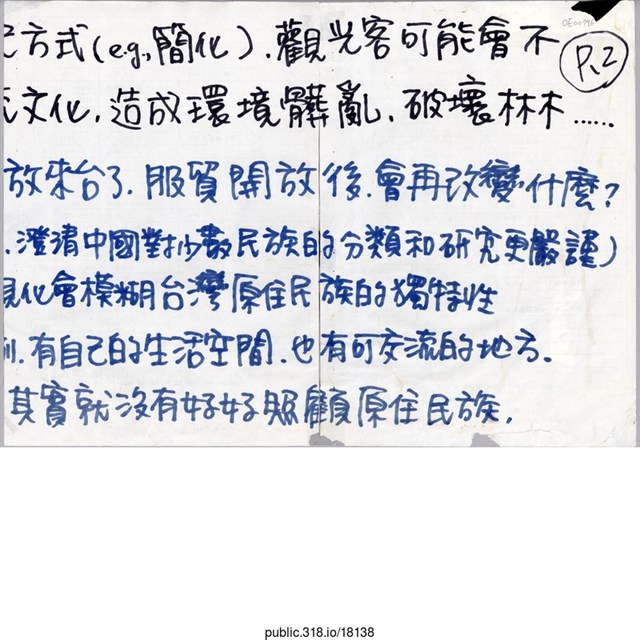 方式(e.g., 簡化).觀光客可能會不
P.2
OE00796
文化.造成環境髒亂.破壞林木......
放來台了.服貿開放後.會再改變什麼?
.澄清中國對少數民族的分類和研究更嚴謹)
化會模糊台灣原住民族的獨特性
.有自己的生活空間.也有可交流的地方。
其實就沒有好好照顧原住民族.
public.318.io/18138